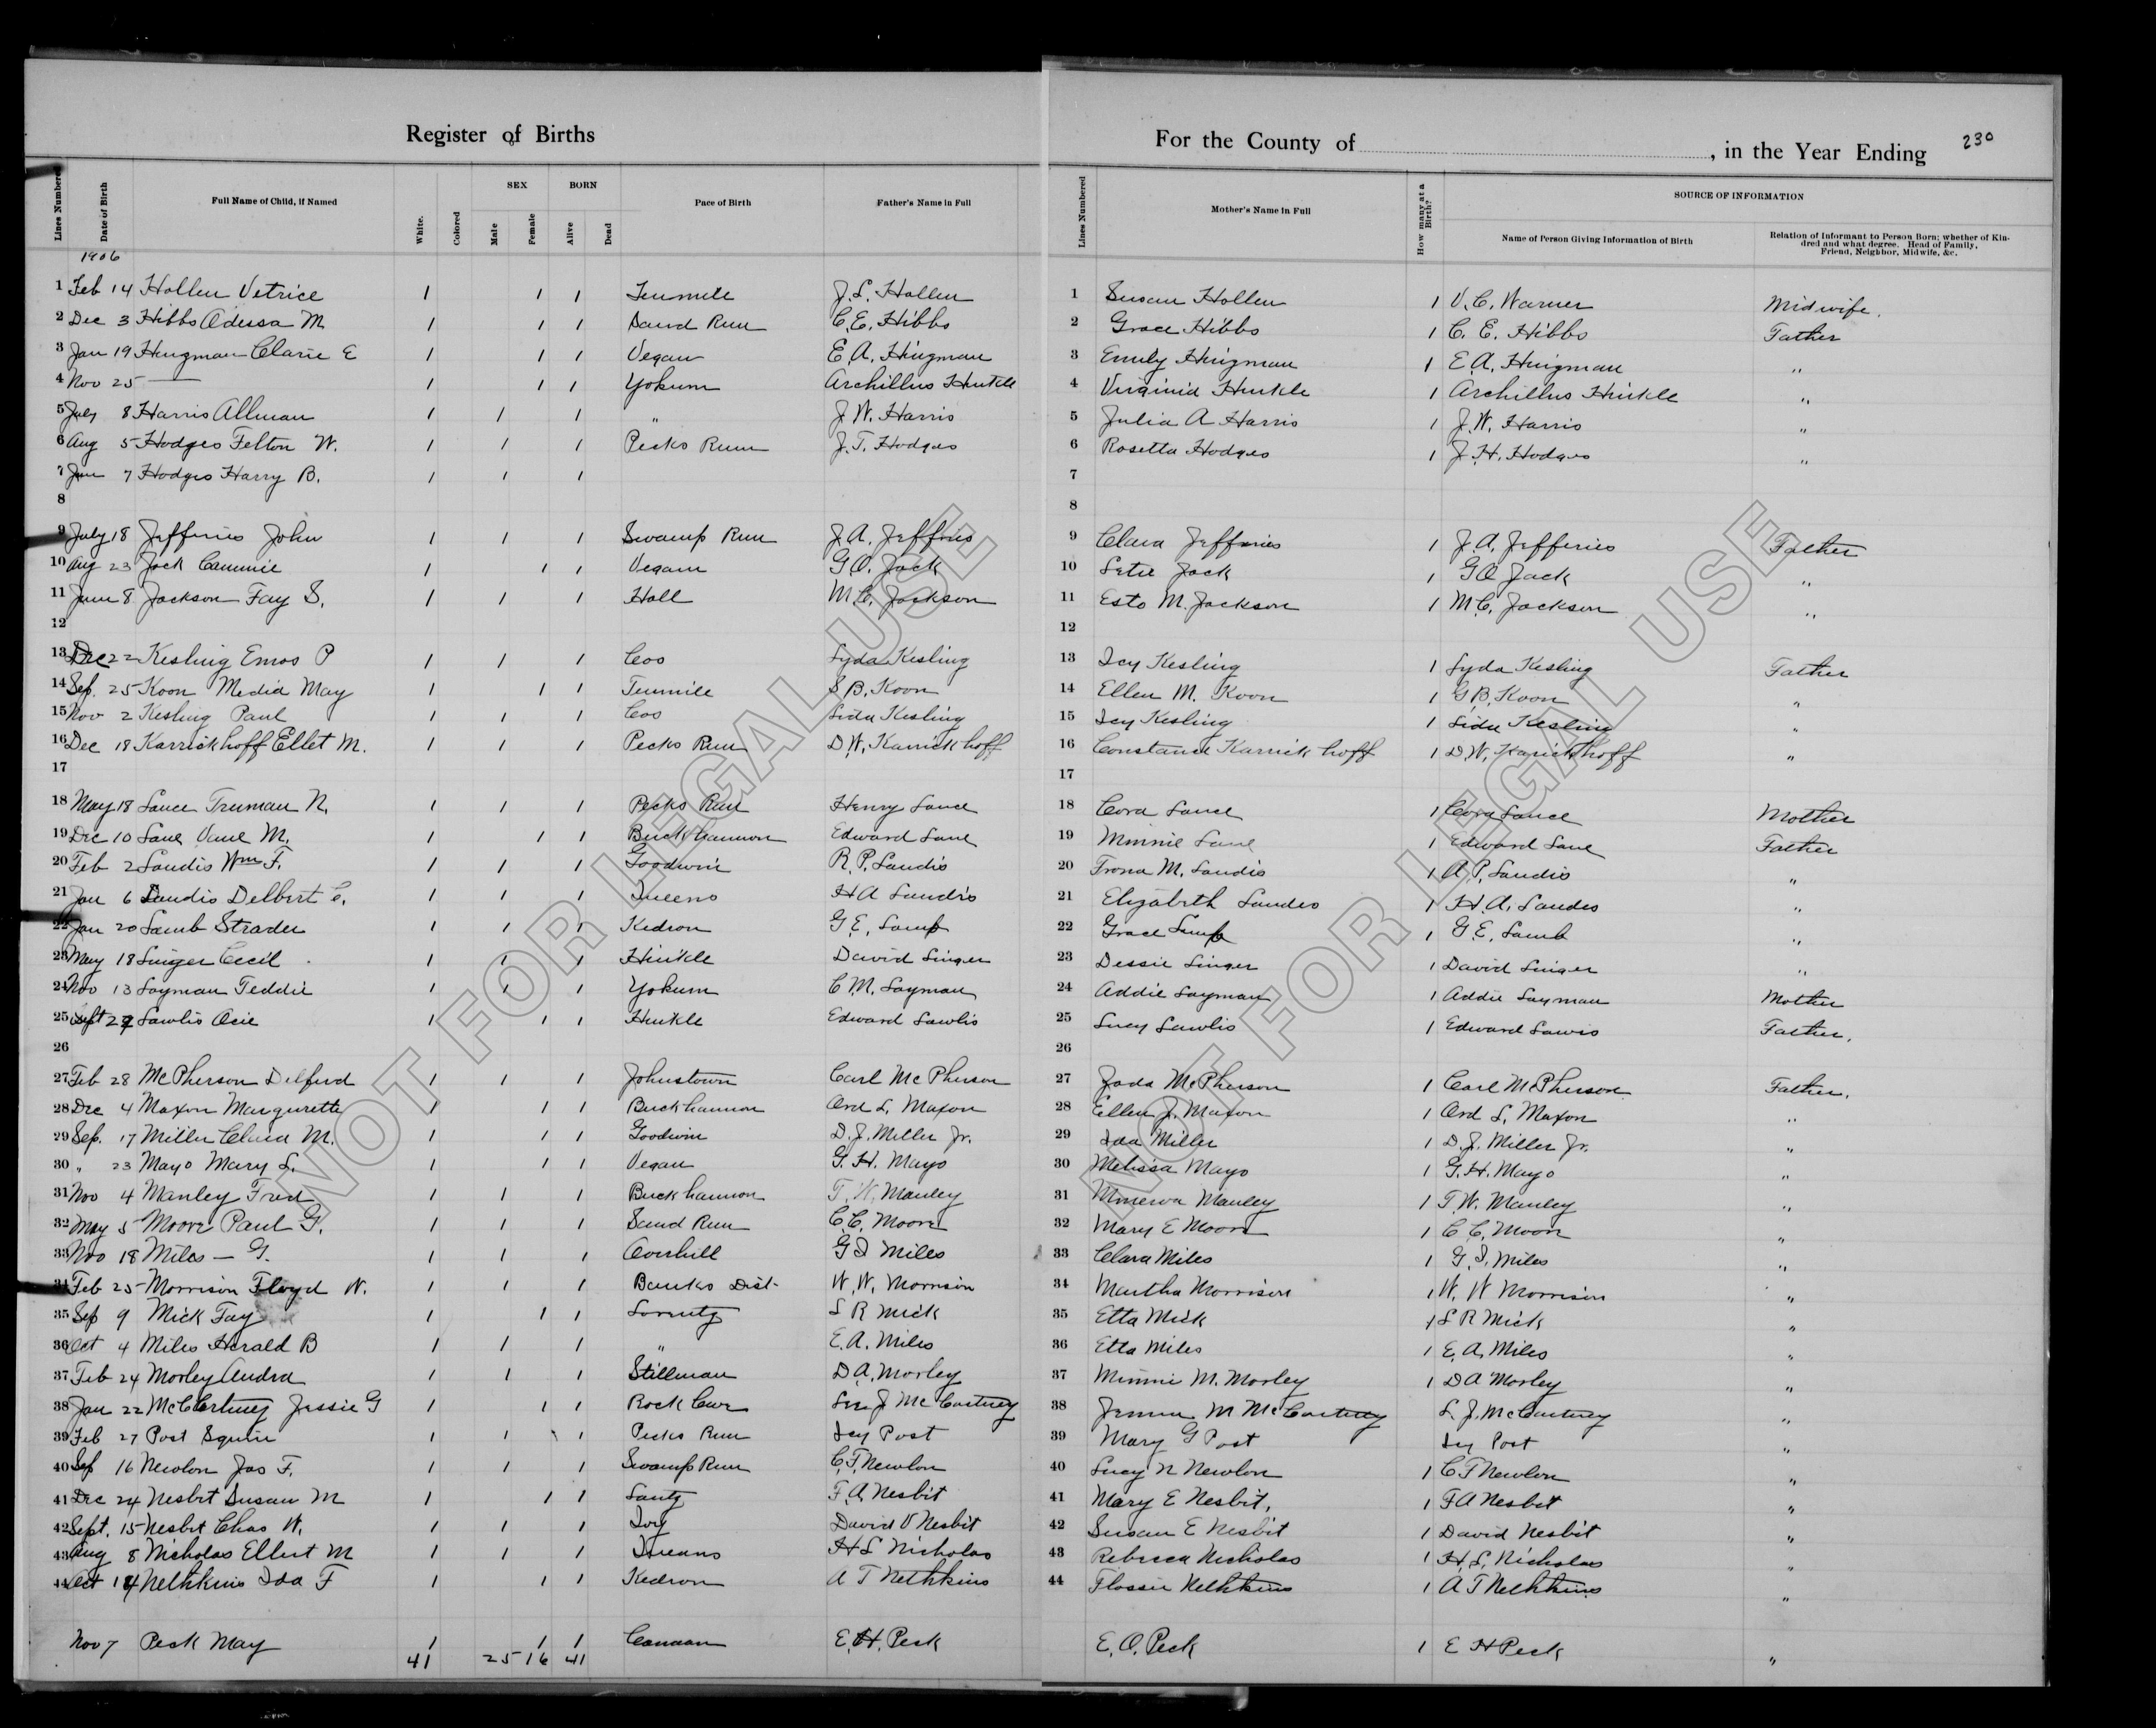 Register of Births
For the County of , in the Year Ending 230
Lines Numbered Date of Birth Full Name of Child, if Named White. Colored SEX Male Female BORN Alive Dead Pace of Birth Father's Name in Full Lines Numbered Mother's Name in Full How many at a Birth? SOURCE OF INFORMATION Name of Person Giving Information of Birth Relation of Informant to Person Born; whether of Kindred and what degree. Head of Family, Friend, Neighbor, Midwife, &c.
1906
1 Feb 14 Hollen Vetrice 1 1 1 Tenmile J. L. Hollen 1 Susan Hollen 1 V. C. Warner Midwife.
2 Dec 3 Hibbs Odessa M. 1 1 1 Sand Run C. E. Hibbs 2 Grace Hibbs 1 C. E. Hibbs Father
3 Jan 19 Hingman Clarie E 1 1 1 Vegan E. A. Hingman 3 Emily Hingman 1 E. A. Hingman "
4 Nov 25 — 1 1 1 Yokum Archillus Hinkle 4 Virginia Hinkle 1 Archillus Hinkle "
5 July 8 Harris Allman 1 1 1 " J. W. Harris 5 Julia A Harris 1 J. W. Harris "
6 Aug 5 Hodges Felton W. 1 1 1 Pecks Run J. T. Hodges 6 Rosetta Hodges 1 J. H. Hodges "
7 Jan 7 Hodges Harry B. 1 1 1 7
8 8
9 July 18 Jefferies John 1 1 1 Swamp Run J. A. Jeffries 9 Clara Jeffries 1 J. A. Jefferies Father
10 Aug 23 Jack Cammie 1 1 1 Vegan G. O. Jack 10 Setie Jack 1 G O Jack "
11 June 8 Jackson Fay S. 1 1 1 Hall M. C. Jackson 11 Esto M. Jackson 1 M. C. Jackson "
12 12
13 Dec 22 Kesling Emos P 1 1 1 Coo Lyda Kesling 13 Icy Kesling 1 Lyda Kesling Father
14 Sep. 25 Koon Media May 1 1 1 Tenmile S. B. Koon 14 Ellen M. Koon 1 G. B. Koon "
15 Nov 2 Kesling Paul 1 1 1 Coo Lida Kesling 15 Icy Kesling 1 Lida Kesling "
16 Dec 18 Karrickhoff Ellet M. 1 1 1 Pecks Run D. W. Karrickhoff 16 Constance Karrickhoff 1 D. W. Karickhoff "
17 17
18 May 18 Lance Truman N. 1 1 1 Pecks Run Henry Lance 18 Cora Lance 1 Cora Lance Mother
19 Dec 10 Lane Vane M. 1 1 1 Buckhannon Edward Lane 19 Minnie Lane 1 Edward Lane Father
20 Feb 2 Landis Wm F. 1 1 1 Goodwin R. P. Landis 20 Trona M. Landis 1 A. P. Landis "
21 Jan 6 Landis Delbert C. 1 1 1 Queens H A Landis 21 Elizabeth Landes 1 H. A. Landes "
22 Jan 20 Lamb Strader 1 1 1 Kedron G. E. Lamb 22 Grace Lamb 1 G. E. Lamb "
23 May 18 Linger Cecil 1 1 1 Hinkle David Linger 23 Dessie Linger 1 David Linger "
24 Nov 13 Layman Teddie 1 1 1 Yokum C. M. Layman 24 Addie Layman 1 Addie Layman Mother
25 Sept 27 Lawlis Ocie 1 1 1 Hinkle Edward Lawlis 25 Lucy Lawlis 1 Edward Lawis Father.
26 26
27 Feb 28 McPherson Delferd 1 1 1 Johnstown Carl McPherson 27 Zada McPherson 1 Carl McPherson Father.
28 Dec 4 Maxon Margurette 1 1 1 Buckhannon Ord L. Maxon 28 Ellen J. Maxon 1 Ord L. Maxon "
29 Sep. 17 Miller Clara M. 1 1 1 Goodwin D. J. Miller Jr. 29 Ida Miller 1 D. J. Miller Jr. "
30 " 23 Mayo Mary L. 1 1 1 Vegan G. H. Mayo 30 Melissa Mayo 1 G. H. Mayo "
31 Nov 4 Manley Fred 1 1 1 Buckhannon T. W. Manley 31 Minerva Manley 1 T. W. Manley "
32 May 5 Moore Paul G. 1 1 1 Sand Run C. C. Moore 32 Mary E Moore 1 C. C. Moore "
33 Nov 18 Miles — G. 1 1 1 Overhill G I Miles 33 Clara Miles 1 G. I. Miles "
34 Feb 25 Morrison Floyd W. 1 1 1 Banks Dist. W. W. Morrison 34 Martha Morrison 1 W. W Morrison "
35 Sep 9 Mick Fay 1 1 1 Lorentz L R Mick 35 Etta Mick 1 L R Mick "
36 Oct 4 Miles Herald B 1 1 1 " E. A. Miles 36 Etta Miles 1 E. A. Miles "
37 Feb 24 Morley Audra 1 1 1 Stillman D. A. Morley 37 Minnie M. Morley 1 D A Morley "
38 Jan 22 McCartney Jessie G 1 1 1 Rock Cave J McCartney 38 M McCartney L. J. McCartney "
39 Feb 27 Post Squire 1 1 1 Pecks Run Icy Post 39 Mary G Post Icy Post "
40 Sep 16 Newlon Jas F. 1 1 1 Swamp Run C. F. Newlon 40 Lucy N Newlon 1 C F Newlon "
41 Dec 24 Nesbit Susan M 1 1 1 Lantz F. A. Nesbit 41 Mary E Nesbit, 1 F A Nesbit "
42 Sept. 15 Nesbit Chas W. 1 1 1 Ivy David V Nesbit 42 Susan E Nesbit 1 David Nesbit "
43 Aug 8 Nicholas Ellert M 1 1 1 Queens H L Nicholas 43 Rebecca Nicholas 1 H. L. Nicholas "
44 Oct 14 Nethkins Ida F 1 1 1 Kedron A T Nethkins 44 Flossie Nethkins 1 A T Nethkins "
Nov 7 Peck May 1 1 1 Canaan E. H. Peck E. O. Peck 1 E H Peck "
41 25 16 41
NOT FOR LEGAL USE
NOT FOR LEGAL USE